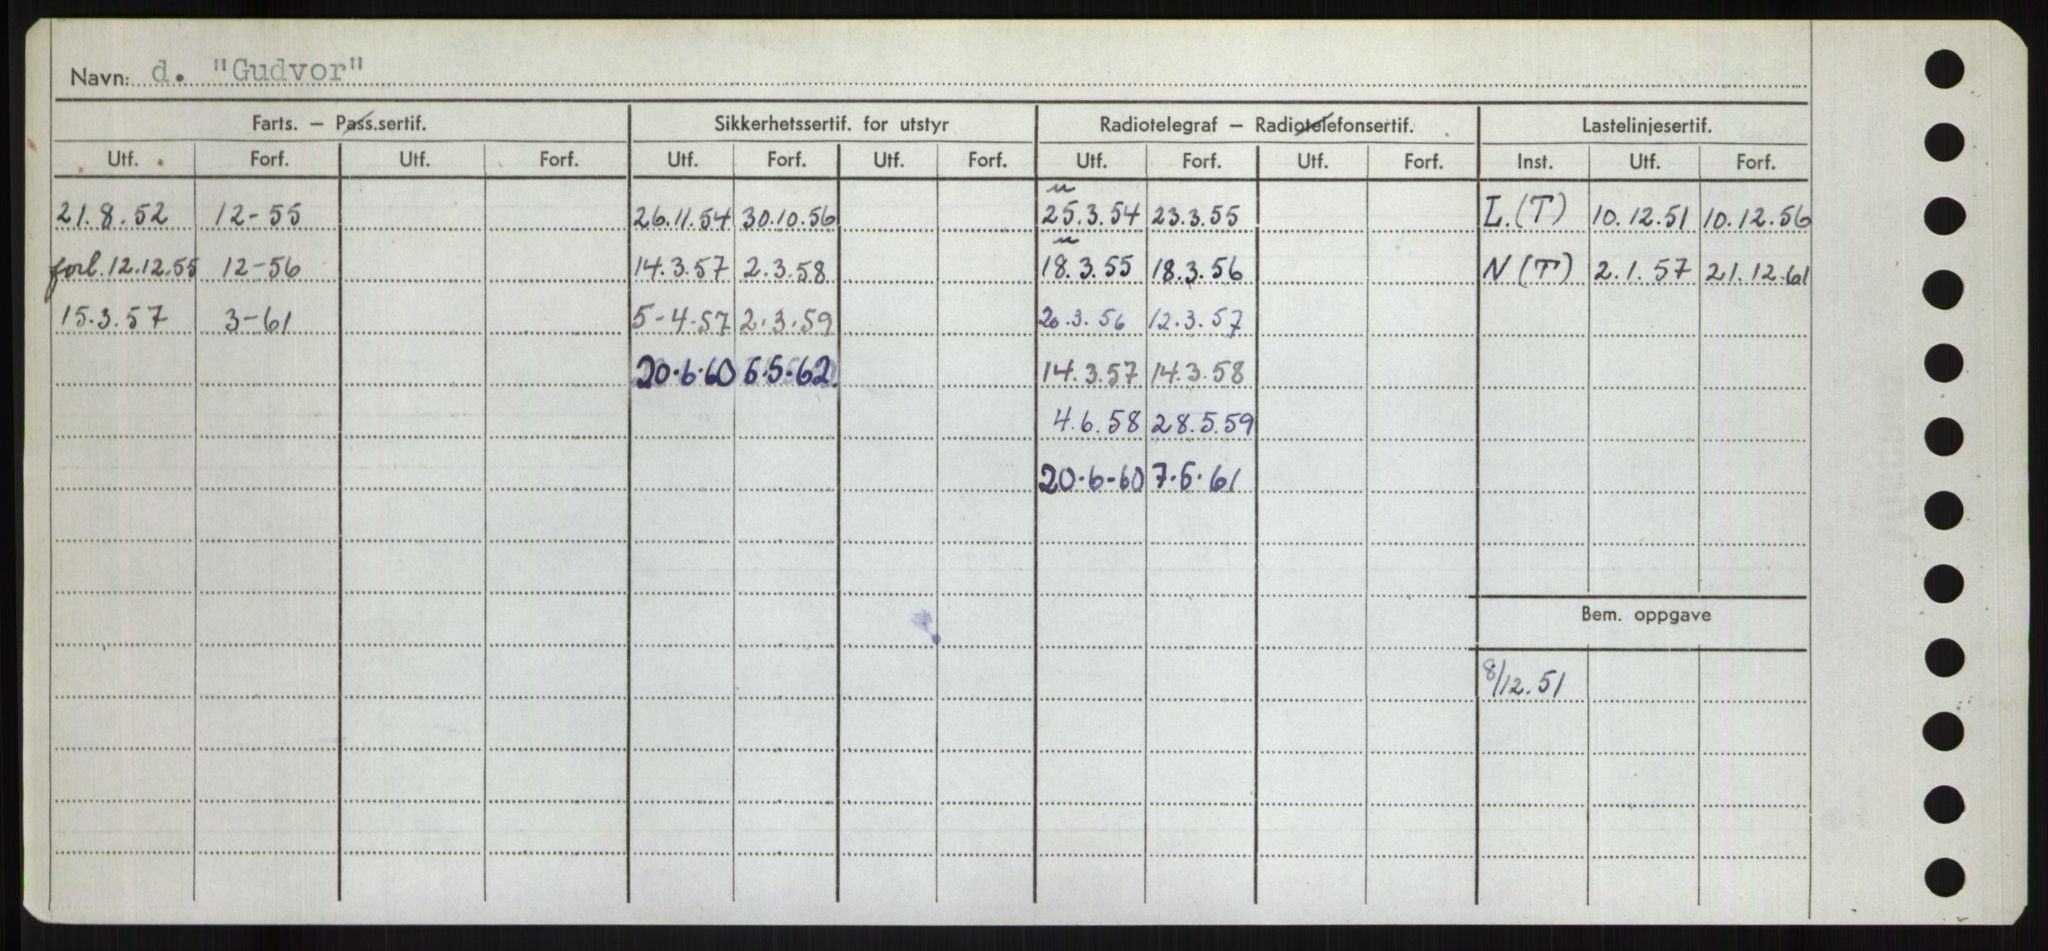 Navn: d. "Gudvor"
Farts. — Pass.sertif. Sikkerhetssertif. for utstyr Radiotelegraf — Radiotelefonsertif. Lastelinjesertif.
Utf. Forf. Utf. Forf. Utf. Forf. Utf. Forf. Utf. Forf. Utf. Forf. Inst. Utf. Forf.
21.8.52 12-55 26.11.54 30.10.56 25.3.54 23.3.55 L.(T) 10.12.51 10.12.56
forl.12.12.55 12-56 14.3.57 2.3.58 18.3.55 18.3.56 N(T) 2.1.57 21.12.61
15.3.57 3-61 5-4-57 2.3.59 20.3.56 12.3.57
20.6.60 14.3.57 14.3.58
4.6.58 28.5.59
20.6-60
Bem. oppgave
8/12.51